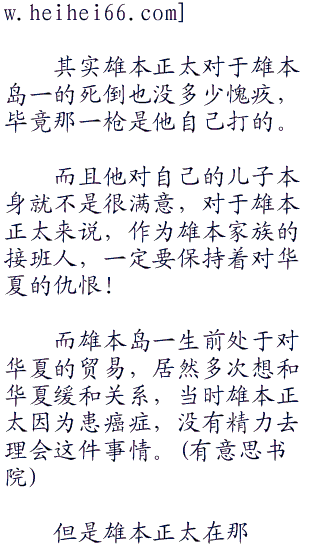 w.heihei66.com]
其实雄本正太对于雄本
岛一的死倒也没多少愧疚，
毕竟那一枪是他自己打的。
而且他对自己的儿子本
身就不是很满意，对于雄本
正太来说，作为雄本家族的
接班人，一定要保持着对华
夏的仇恨！
而雄本岛一生前处于对
华夏的贸易，居然多次想和
华夏缓和关系，当时雄本正
太因为患癌症，没有精力去
理会这件事情。(有意思书
院)
但是雄本正太在那